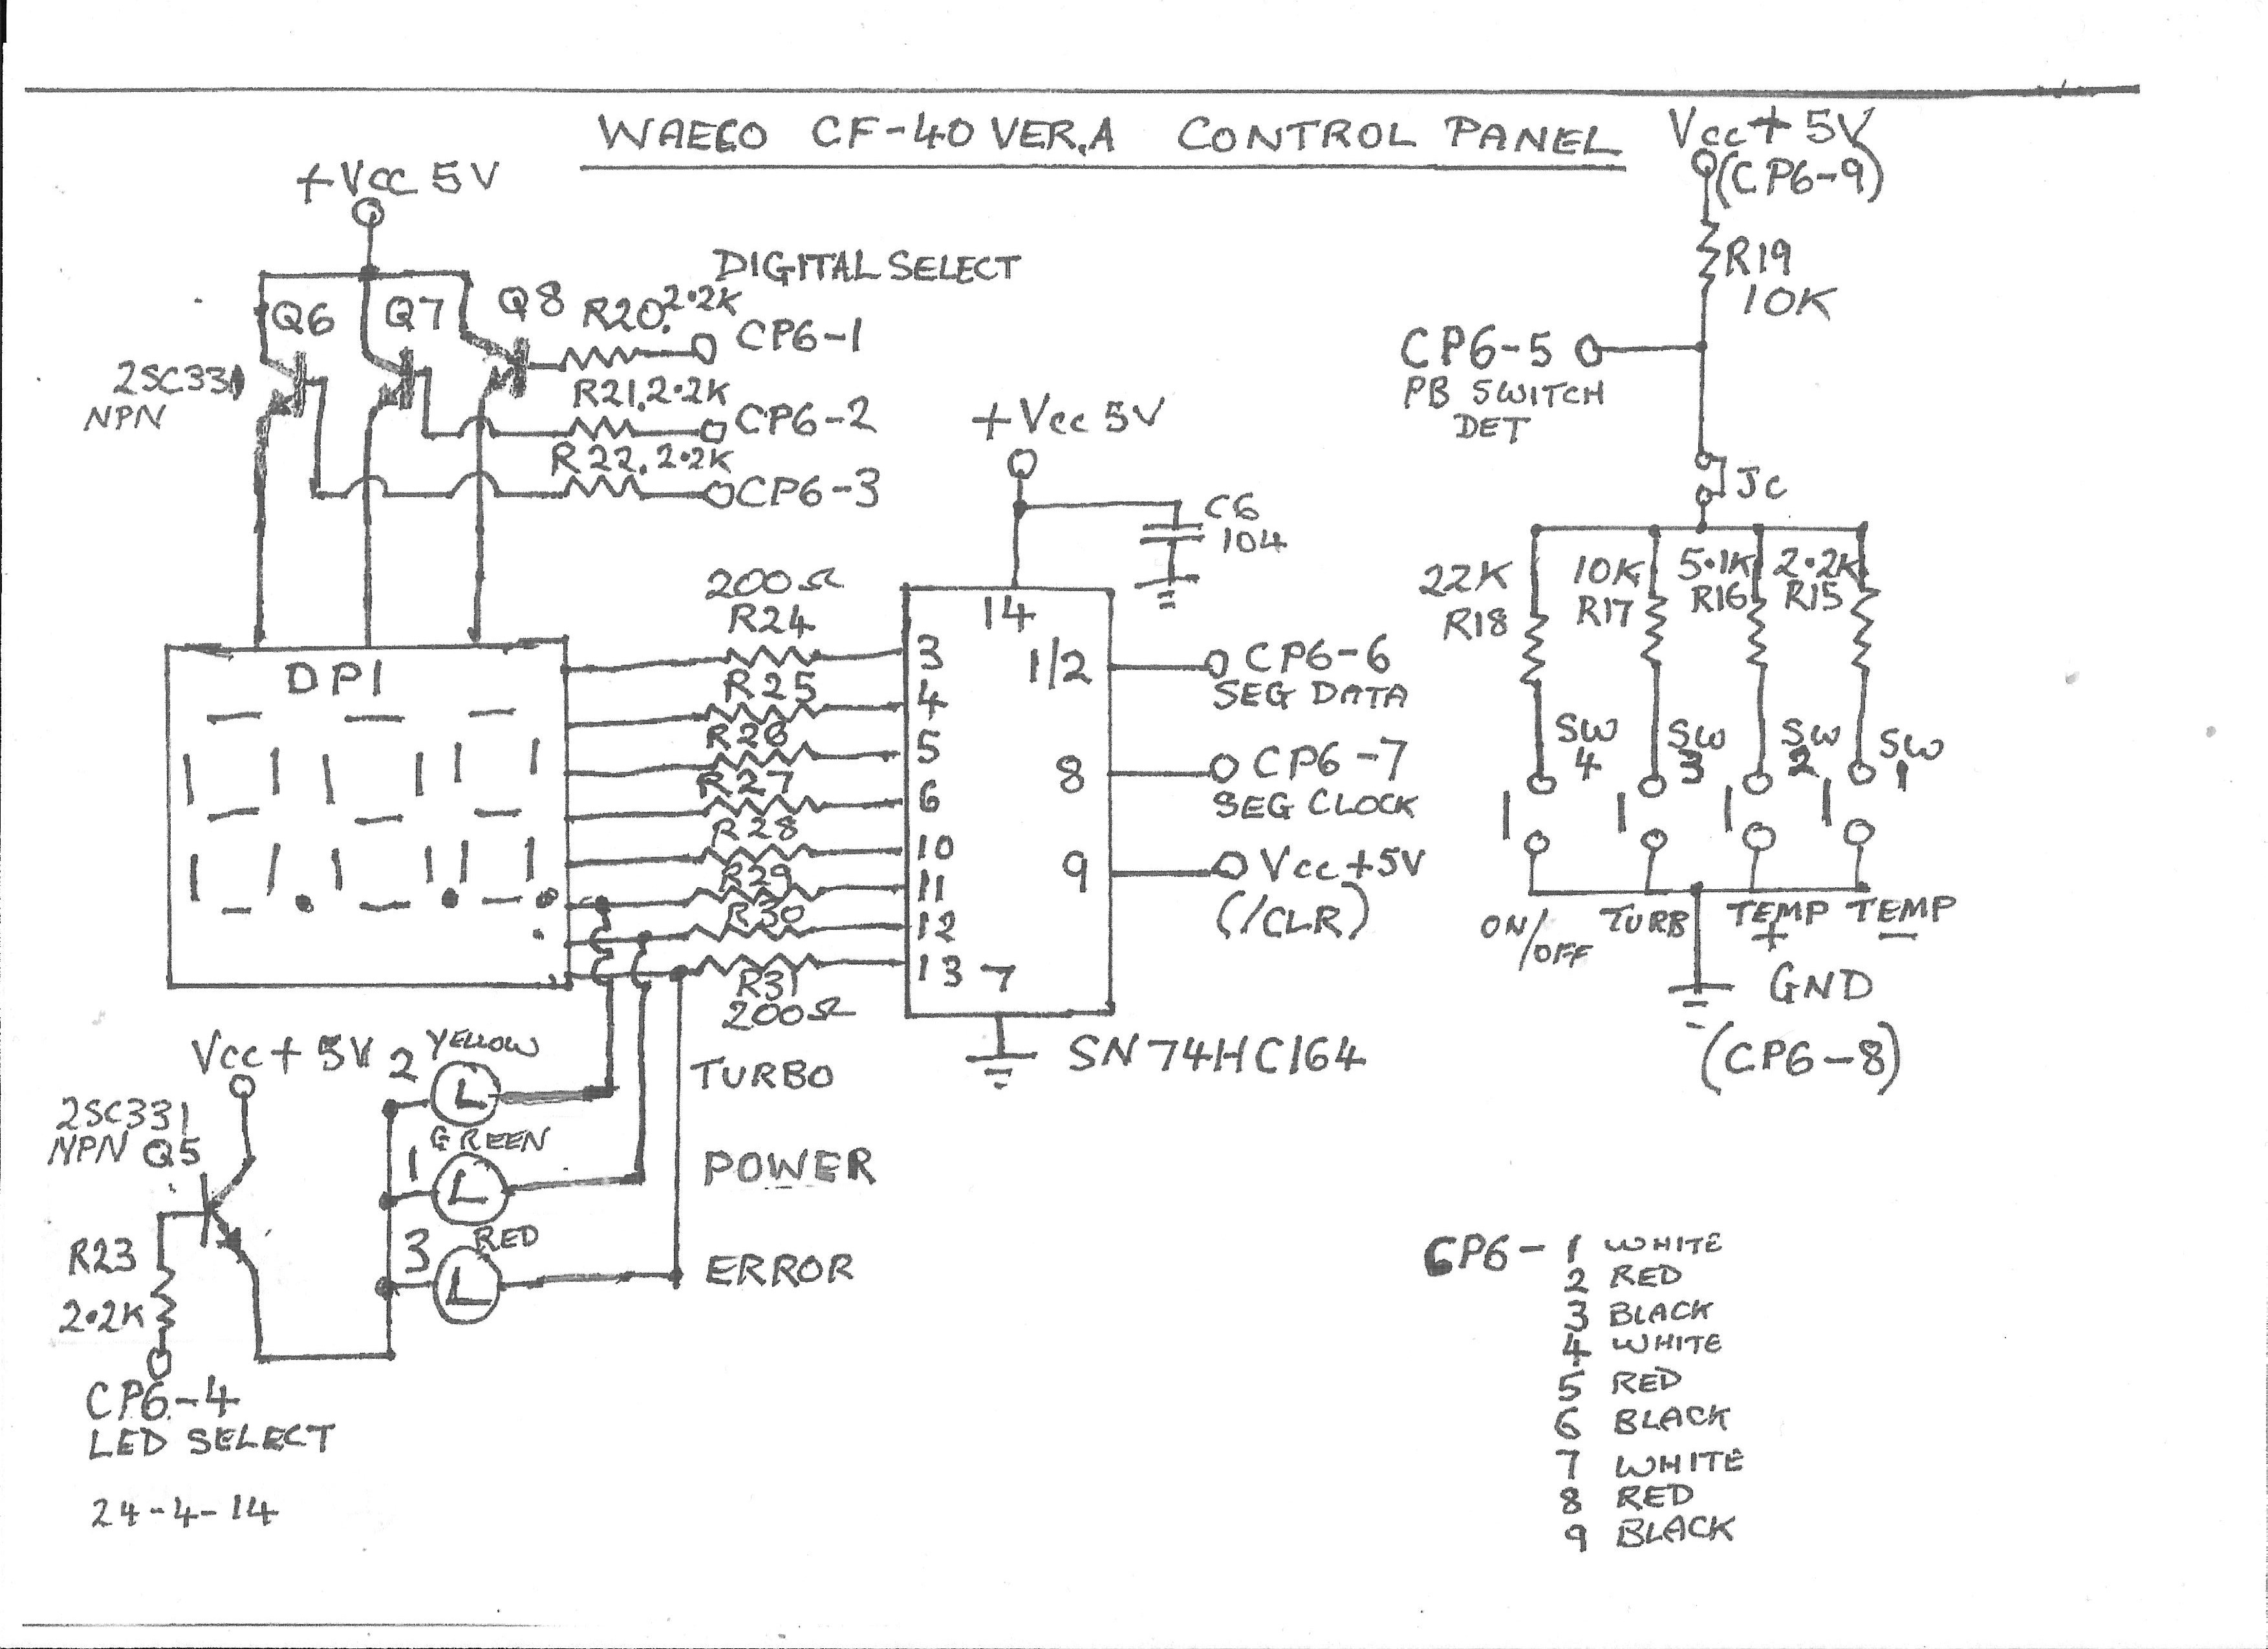 WAECO CF-40 VER.A CONTROL PANEL
+Vcc 5V
Q6
Q7
Q8
2SC331
NPN
DIGITAL SELECT
R20. 2.2K
CP6-1
R21, 2.2K
CP6-2
R22. 2.2K
CP6-3
DP1
200Ω
R24
R25
R26
R27
R28
R29
R30
R31
200Ω
+Vcc 5V
C6
104
14
3
4
5
6
10
11
12
13
7
1/2
8
9
CP6-6
SEG DATA
CP6-7
SEG CLOCK
Vcc +5V
(/CLR)
SN74HC164
Vcc + 5V
(CP6-9)
R19
10K
CP6-5
PB SWITCH
DET
Jc
22K
R18
10K
R17
5.1K
R16
2.2K
R15
SW
4
SW
3
SW
2
SW
1
ON/
OFF
TURB
TEMP
+
TEMP
-
GND
(CP6-8)
Vcc + 5V
2SC331
NPN Q5
R23
2.2K
CP6-4
LED SELECT
2 YELLOW
TURBO
1 GREEN
POWER
3 RED
ERROR
24-4-14
CP6- 1 WHITE
2 RED
3 BLACK
4 WHITE
5 RED
6 BLACK
7 WHITE
8 RED
9 BLACK